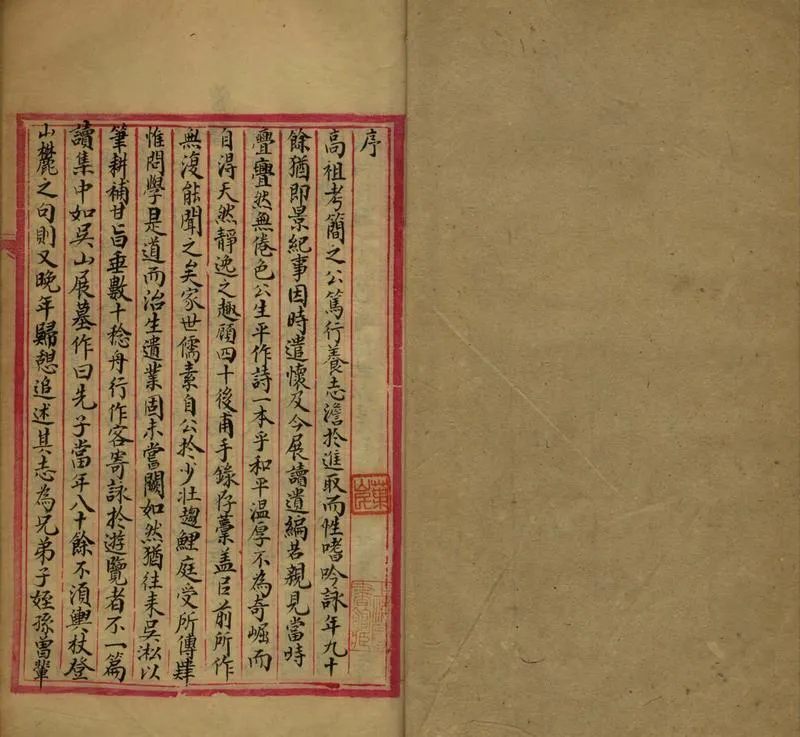 序
高祖考簡之公篤行養志澹於進取而性嗜吟詠年九十
餘猶即景紀事因時遣懷及今展讀遺編若親見當時
亹亹然無倦色公生平作詩一本乎和平温厚不為奇崛而
自淂天然靜逸之趣顧四十後甫手錄存藁盖㠯前所作
無復能聞之矣家世儒素自公於少壯趨鯉庭受所傳肄
惟問學是道而治生遺業固未嘗闕如然猶往来吳淞以
筆耕補甘旨垂數十稔舟行作客寄詠於遊覽者不一篇
讀集中如吳山展墓作曰先子當年八十餘不湏輿杖登
山麓之句則又晚年歸憩追述其志為兄弟子姪孫曾輩